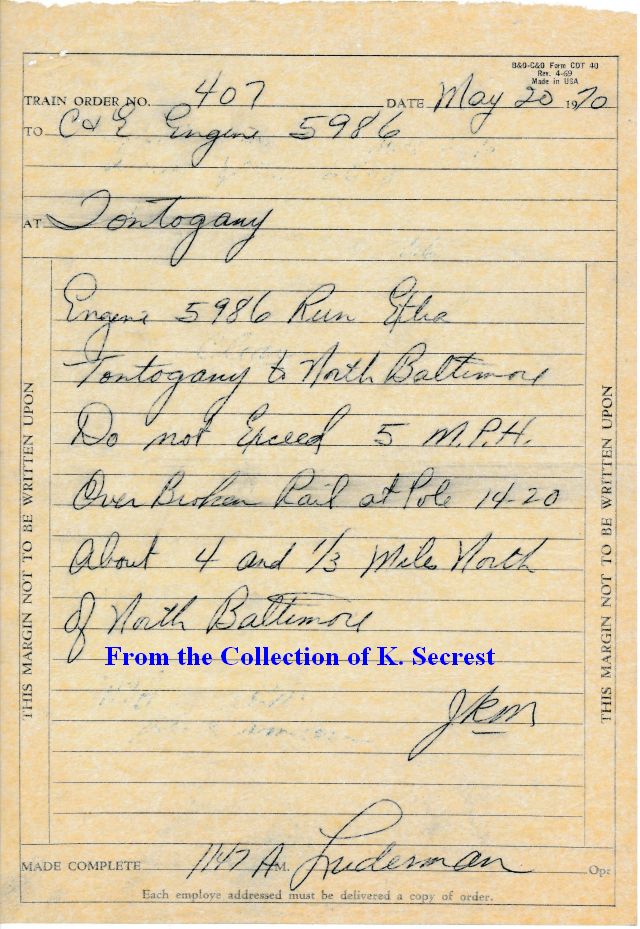 B&O-C&O Form CDT 40
Rev. 4-69
Made in USA
TRAIN ORDER NO. 407 DATE May 20 1970
TO C & E Engine 5986
AT Tontogany
Engine 5986 Run Extra
Tontogany to North Baltimore
Do not Exceed 5 M.P.H.
Over Broken Rail at Pole 14-20
About 4 and 1/3 Miles North
of North Baltimore
From the Collection of K. Secrest
JRM
THIS MARGIN NOT TO BE WRITTEN UPON
THIS MARGIN NOT TO BE WRITTEN UPON
MADE COMPLETE 1147 A M. Luderman Opr
Each employe addressed must be delivered a copy of order.